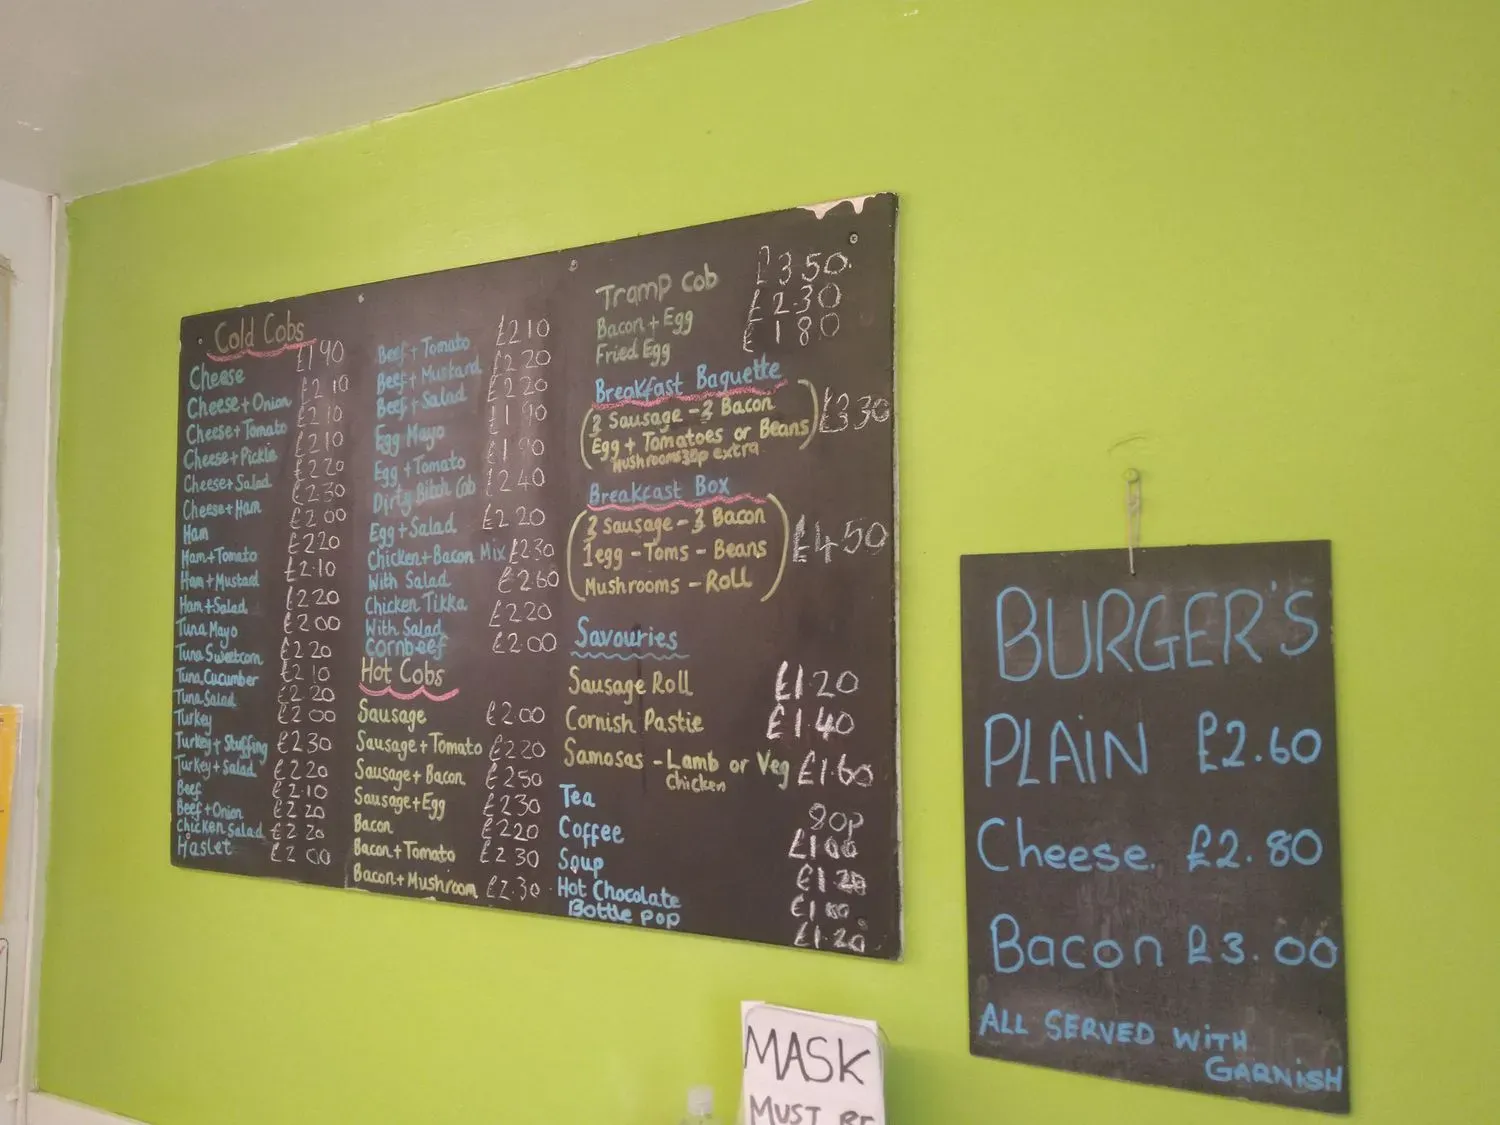 Cold Cobs
Cheese £1.90
Cheese+Onion £2.10
Cheese+Tomato £2.10
Cheese+Pickle £2.10
Cheese+Salad £2.20
Cheese+Ham £2.30
Ham £2.00
Ham+Tomato £2.20
Ham+Mustard £2.10
Ham+Salad £2.20
Tuna Mayo £2.00
Tuna Sweetcorn £2.20
Tuna Cucumber £2.10
Tuna Salad £2.20
Turkey £2.00
Turkey+Stuffing £2.30
Turkey+Salad £2.20
Beef £2.10
Beef+Onion £2.20
Chicken Salad £2.20
Haslet £2.00
Beef+Tomato £2.10
Beef+Mustard £2.20
Beef+Salad £2.20
Egg Mayo £1.90
Egg+Tomato £1.90
Dirty Bitch Cob £2.40
Egg+Salad £2.20
Chicken+Bacon Mix £2.30
With Salad £2.60
Chicken Tikka £2.20
With Salad
Cornbeef £2.00
Hot Cobs
Sausage £2.00
Sausage+Tomato £2.20
Sausage+Bacon £2.50
Sausage+Egg £2.30
Bacon £2.20
Bacon+Tomato £2.30
Bacon+Mushroom £2.30
Tramp Cob £3.50
Bacon+Egg £2.30
Fried Egg £1.80
Breakfast Baguette
Sausage - Bacon £3.30
Egg + Tomatoes or Beans
Mushrooms 30p extra
Breakfast Box
Sausage - Bacon
1 egg - Toms - Beans £4.50
Mushrooms - Roll
Savouries
Sausage Roll £1.20
Cornish Pastie £1.40
Samosas - Lamb or Veg £1.60
Chicken
Tea 80p
Coffee £1.00
Soup £1.20
Hot Chocolate £1.00
Bottle pop £1.20
BURGER'S
PLAiN £2.60
Cheese. £2.80
Bacon £3.00
ALL SERVED WiTH
GARNiSH
MASK
MUST BE